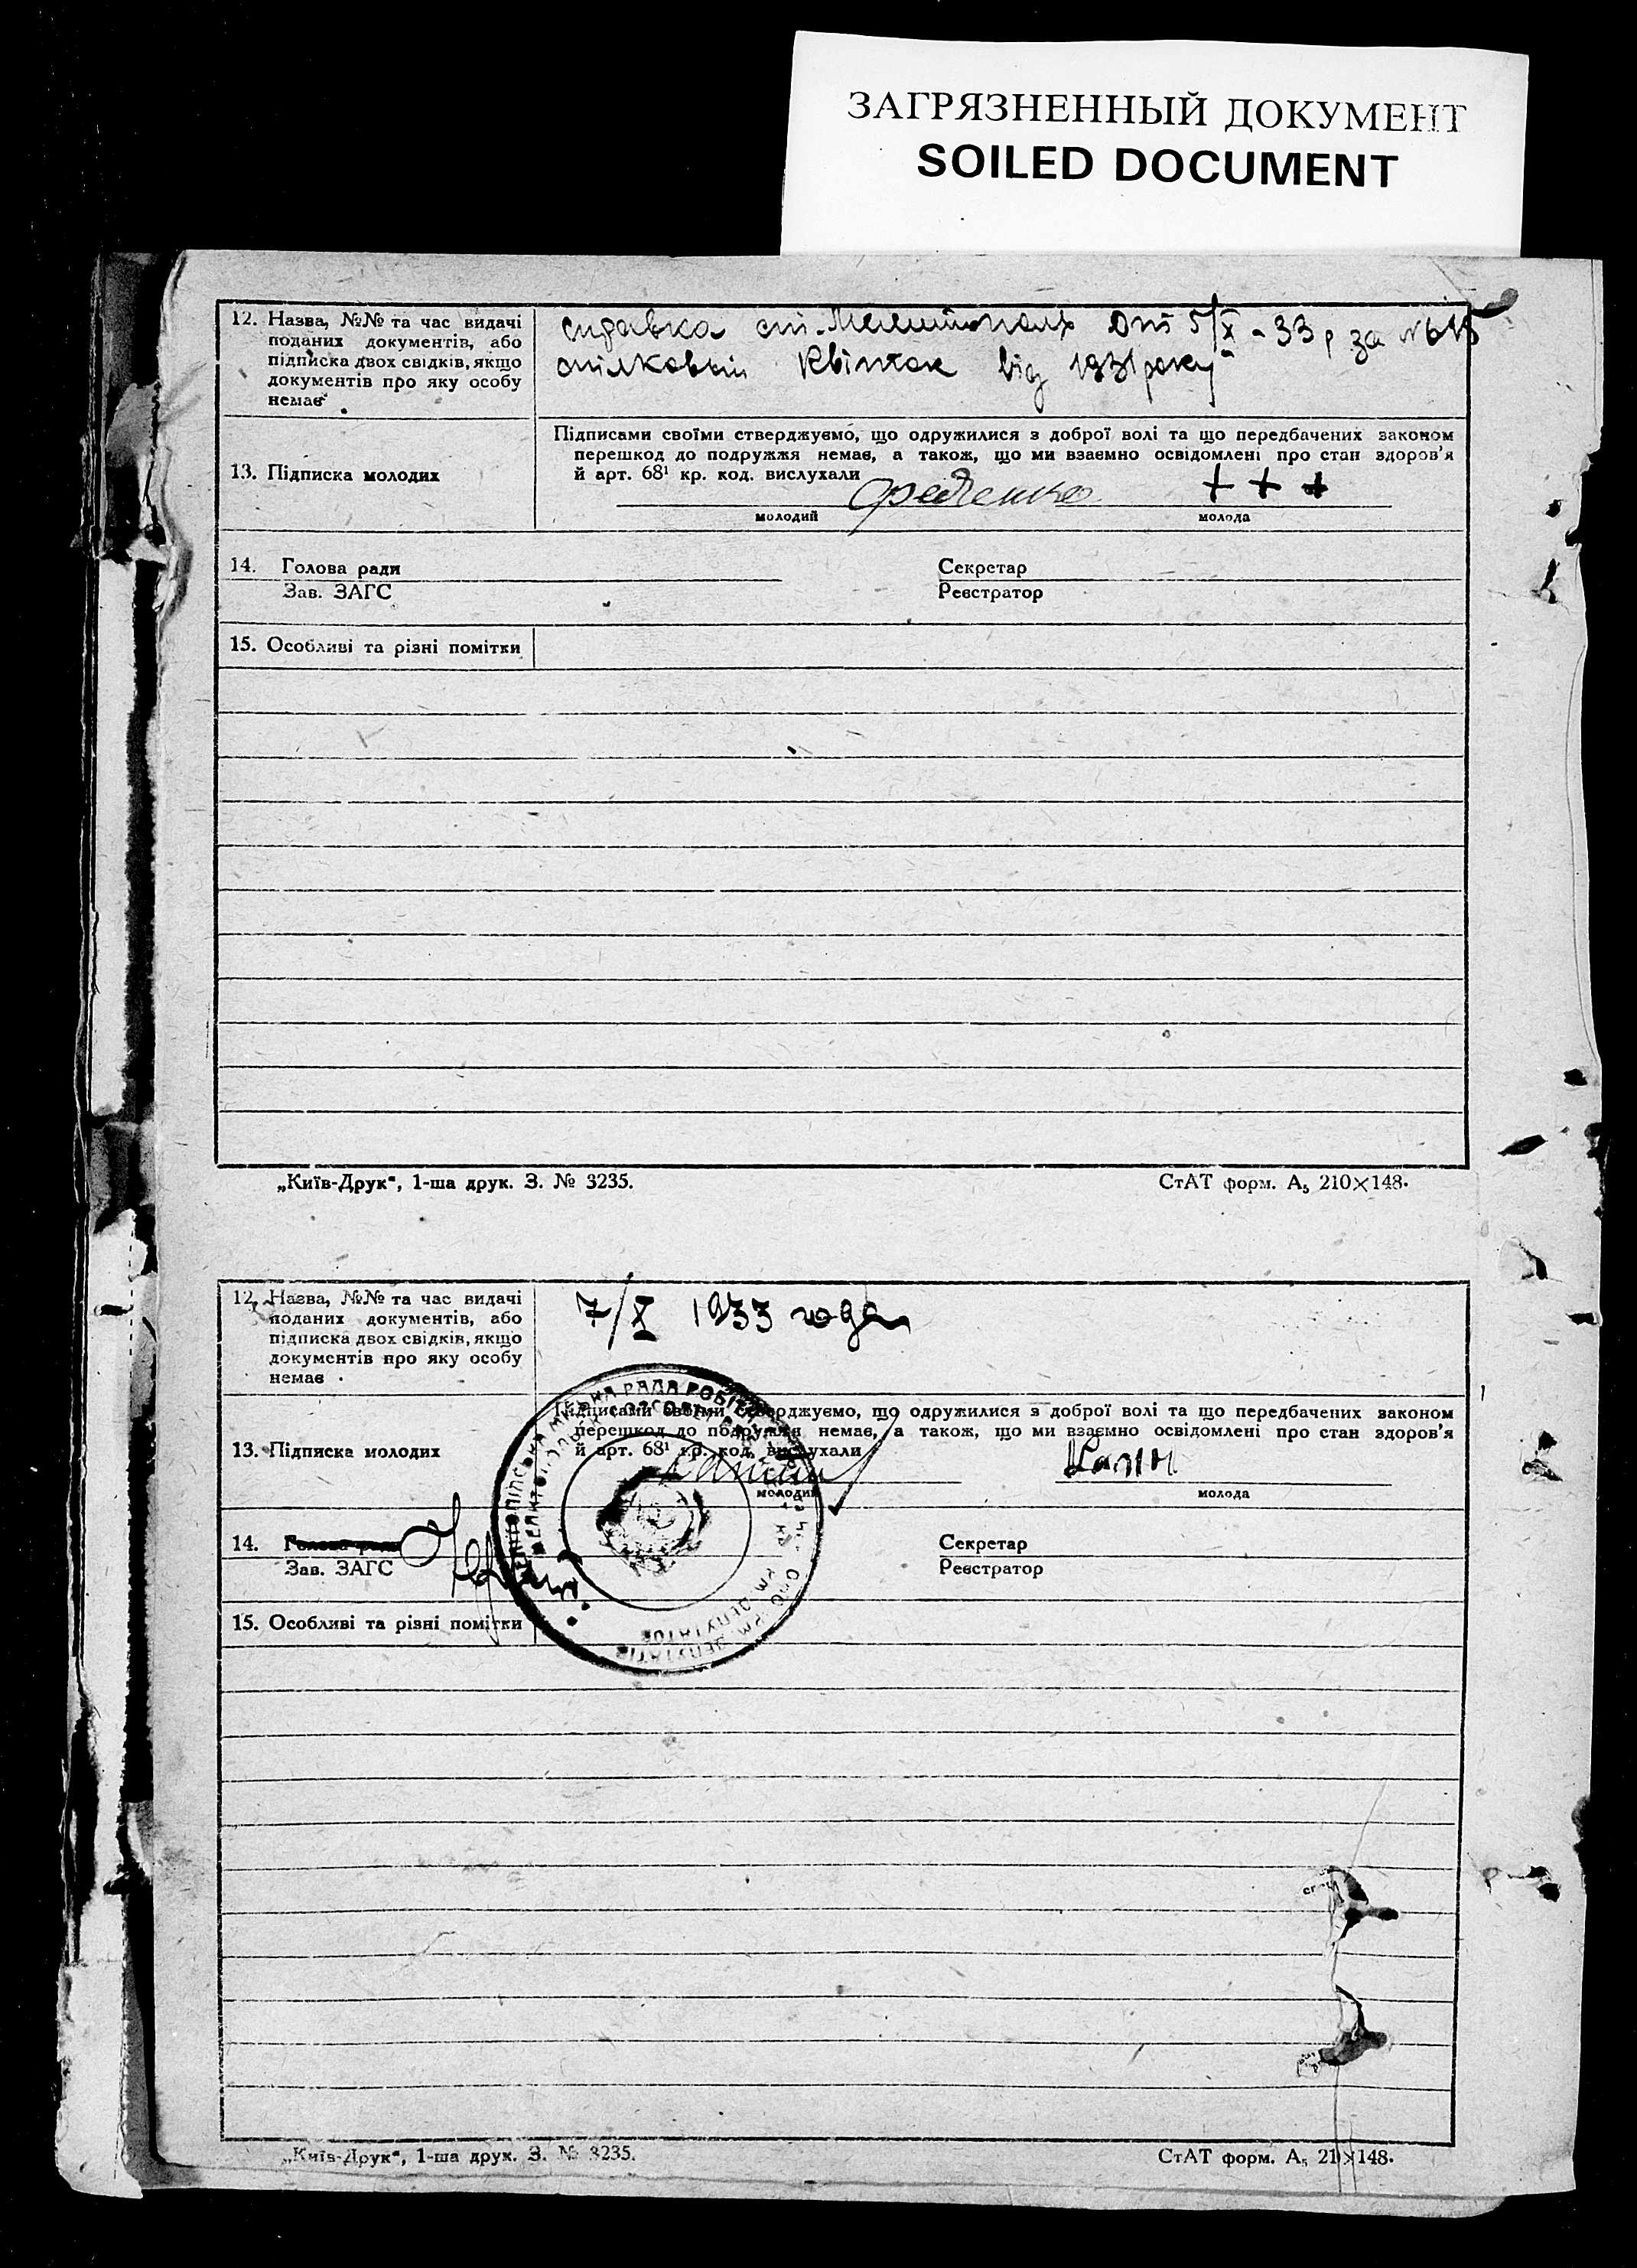 ЗАГРЯЗНЕННЫЙ ДОКУМЕНТ
SOILED DOCUMENT
12. Назва, №№ та час видачі
поданих документів, або
підписка двох свідків, якщо
документів про яку особу
немає
справка ст. Мелитополь от 5/X - 33 р за №
квіток від 1931 року
13. Підписка молодих
Підписами своїми стверджуємо, що одружилися з доброї волі та що передбачених законом
перешкод до подружжя немає, а також, що ми взаємно освідомлені про стан здоров'я
й арт. 68¹ кр. код. вислухали
+ + +
молодий
молода
14. Голова ради
Зав. ЗАГС
Секретар
Реєстратор
15. Особливі та різні помітки
„Київ-Друк“, 1-ша друк. З. № 3235.
СтАТ форм. А₅ 210×148.
12. Назва, №№ та час видачі
поданих документів, або
підписка двох свідків, якщо
документів про яку особу
немає
7/X 1933 года
13. Підписка молодих
Підписами своїми стверджуємо, що одружилися з доброї волі та що передбачених законом
перешкод до подружжя немає, а також, що ми взаємно освідомлені про стан здоров'я
й арт. 68¹ кр. код. вислухали
молодий
молода
14. Голова ради
Зав. ЗАГС
Секретар
Реєстратор
15. Особливі та різні помітки
„Київ-Друк“, 1-ша друк. З. № 3235.
СтАТ форм. А₅ 210×148.